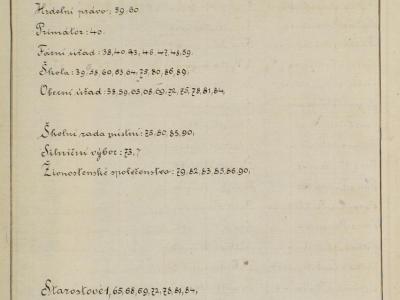 Hrdelní právo: 39,60
Primátor: 40.
Farní úřad: 38,40,43,46,47,48,59.
Škola: 39,58,60,63,64,75,80,86,89;
Obecní úřad: 38,59,65,68,69,72,75,78,81,84,
Školní rada místní: 75,80,85,90;
Silniční výbor: 73,7
Živnostenské společenstvo: 79,82,83,85,86,90,
Starostové 1, 65,68,69,72,78,81,84,